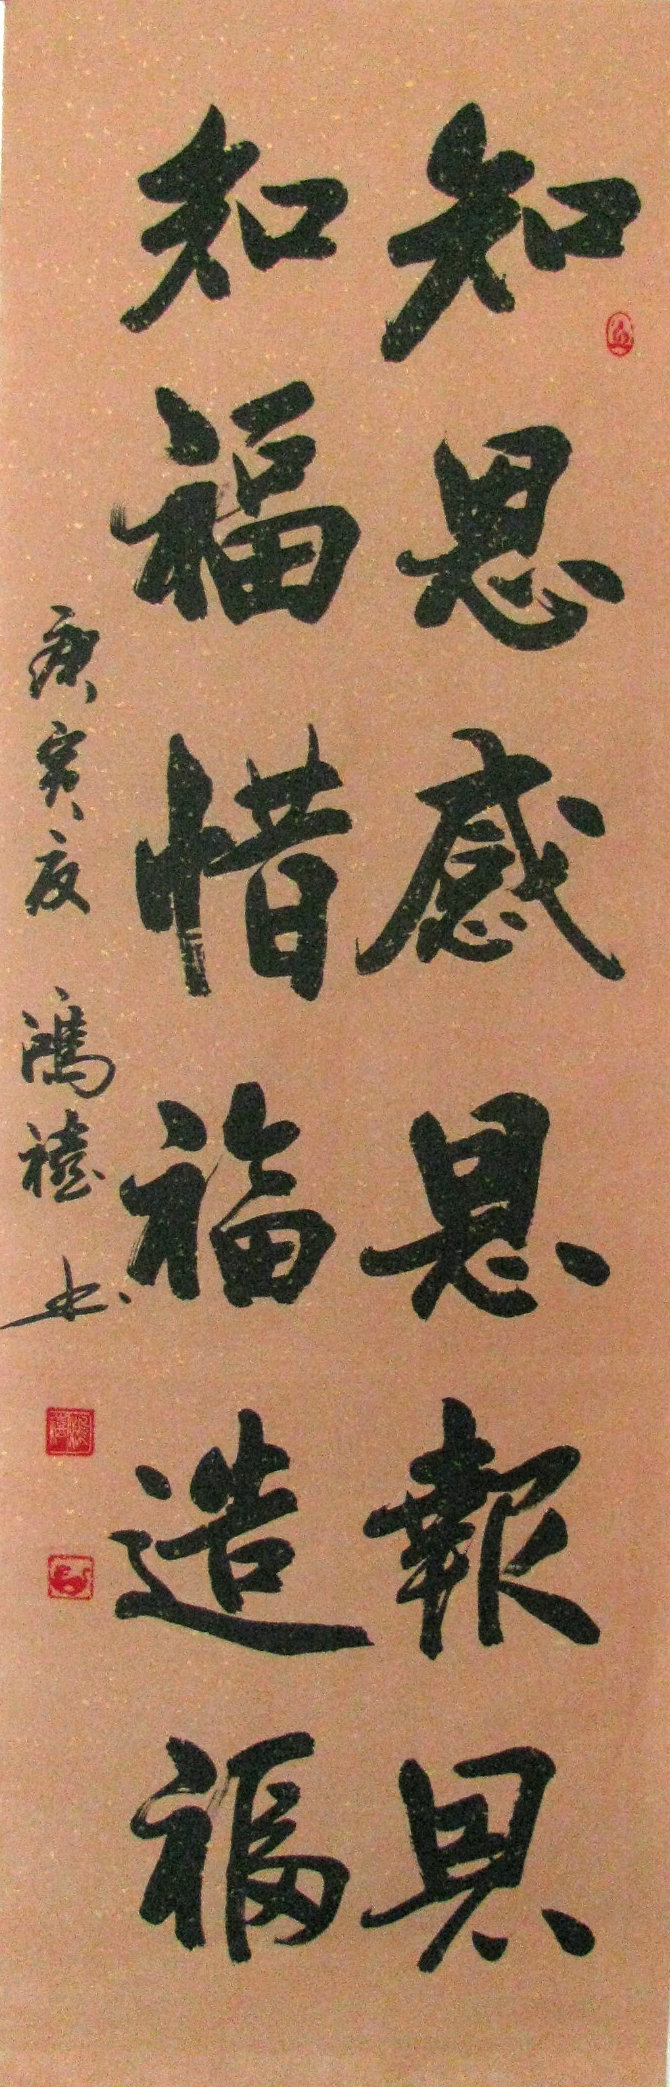 知恩感恩報恩
知福惜福造福
庚寅夜 鴻禧書